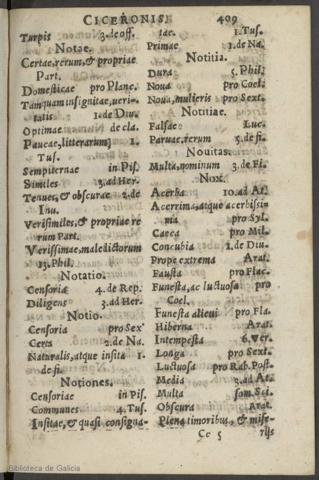 CICERONIS. 409
Turpis 3.de off.
Notae.
Certae, rerum, & propriae
Part.
Domesticae pro Planc.
Tamquam insignitae, veri-
tatis 1. de Diu.
Optimae de cla.
Paucae, litterarum 1.
Tus.
Sempiternae in Pis.
Similes 3. ad Her.
Tenues, & obscurae 2. de
Inu.
Verisimiles, & propriae re
rum Part.
Verissimae, maledictorum
13. Phil.
Notatio.
Censoria 4. de Rep.
Diligens 3. ad Her.
Notio.
Censoria pro Sex
Certa 2. de Na.
Naturalis, atque insita 1.
de fi.
Notiones.
Censoriae in Pis.
Communes 4. Tus.
Insitae, & quasi consigna-
tae. 1. Tus.
Primae 1. de Na.
Notitia.
Dura 5. Phil.
Noua pro Coel.
Noua, mulieris pro Sext.
Notitiae.
Falsae Luc.
Paruae, rerum 5. de fi.
Nouitas.
Multa, nominum 3. de Fi.
Nox.
Acerba 10. ad At.
Acerrima, atque acerbissi
ma pro Syl.
Caeca pro Mil.
Concubia 1. de Diu.
Prope extrema Arat.
Fausta pro Flac.
Funesta, ac luctuosa pro
Coel.
Funesta alicui pro Fla.
Hiberna Arat.
Intempesta 6. Ver.
Longa pro Sext.
Luctuosa pro Rab. Post.
Media 3. ad At.
Multa som. Sci.
Obscura Arat.
Plena timoribus, & mise-
Cc 5 rijs
Biblioteca de Galicia